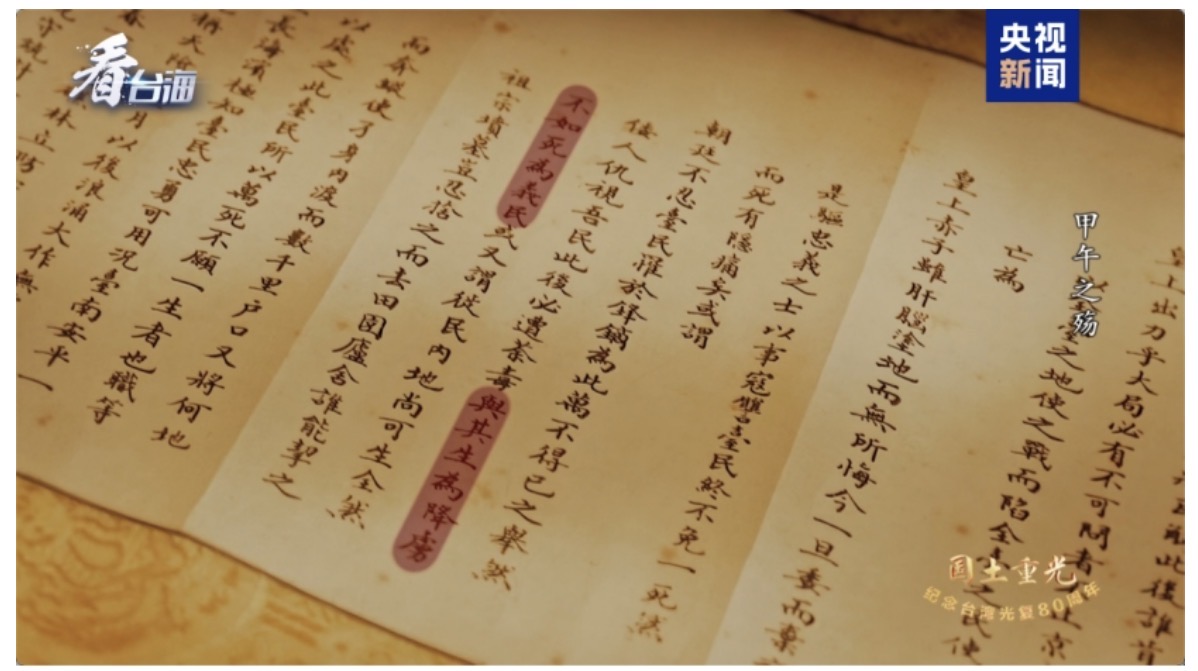 看台海
央视
新闻
甲午之殇
此後誰肯
皇上出力乎大局必有不可問者
臺之地使之戰而陷全之民使
亡為
皇上赤子雖肝腦塗地而無所悔今一旦委而棄
是驅忠義之士以事寇讎臺民終不免一死然
而死有隱痛矣或謂
朝廷不忍臺民罹於鋒鏑為此萬不得已之舉然
倭人仇視吾民此後必遭荼毒與其生為降虜
不如死為義民或又謂徙民內地尚可生全然
祖宗墳墓豈忍捨之而去田園廬舍誰能挈之
而奔縱使孑身內渡而數千里戶口又將何地
以處之此臺民所以萬死不願一生者也職等
極知臺民忠勇可用況臺南安平一
月以後浪涌大作無
国土重光
纪念台湾光复80周年